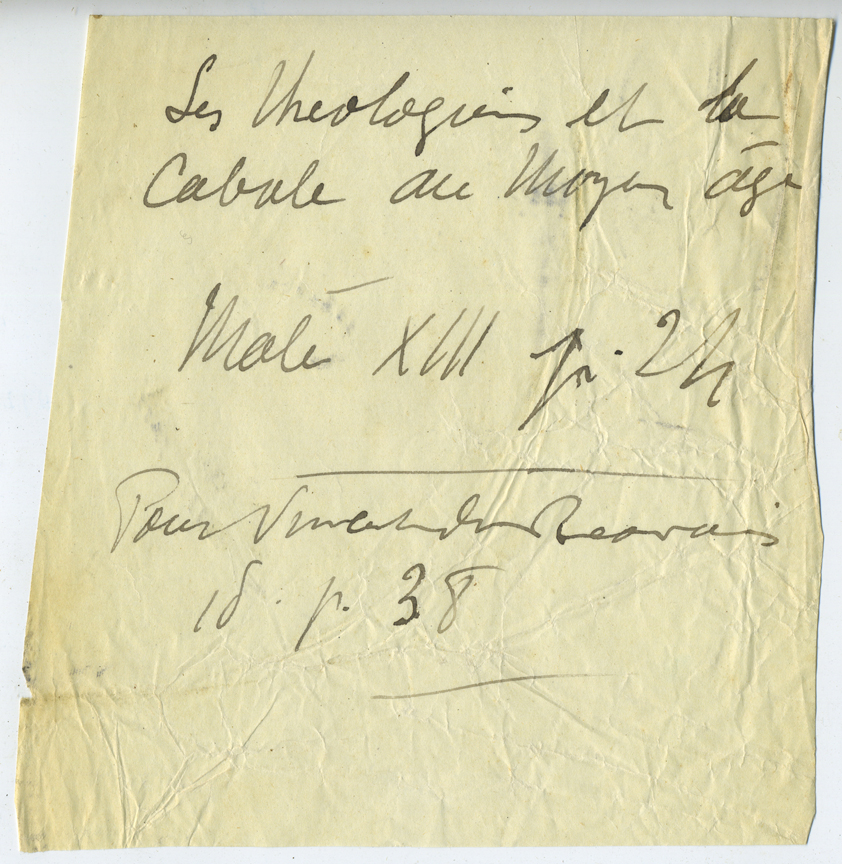 Les théologiens et la
Cabale au Moyen âge
Male XIII p. 24
Pour Vincent de Beauvais
id. p. 38